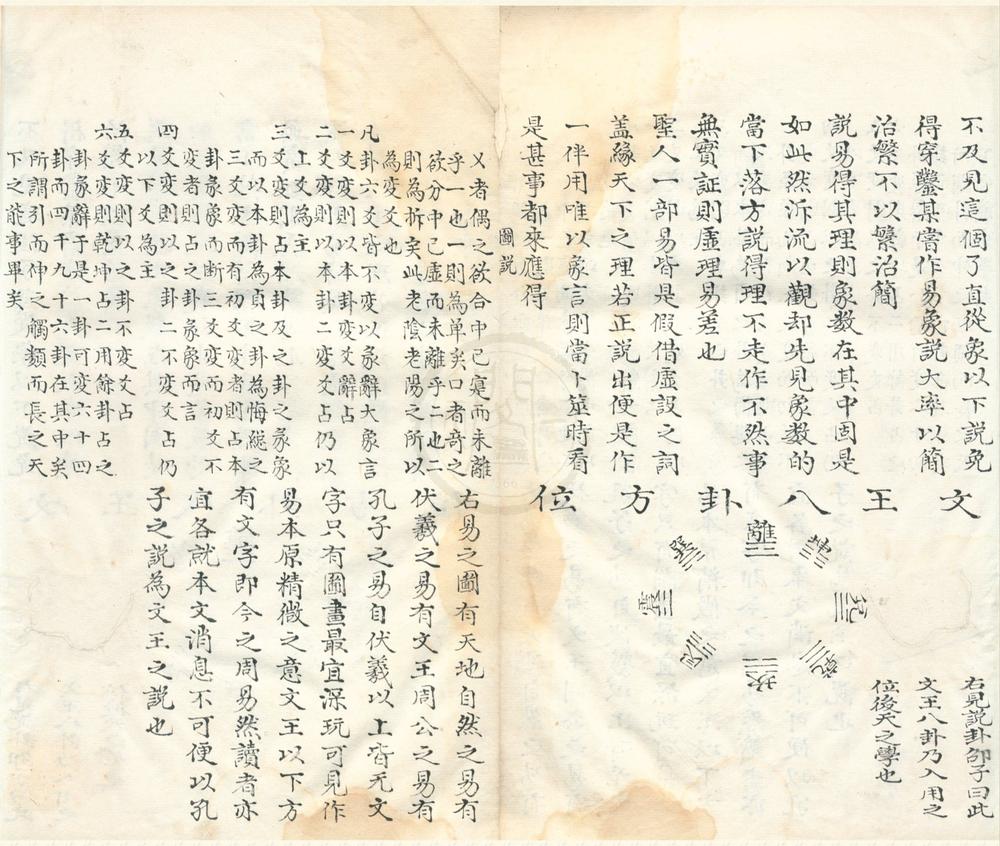 不及見這個了直從象以下說免
得穿鑿某嘗作易象說大率以簡
治繁不以繁治簡
說易得其理則象数在其中固是
如此然泝流以觀却先見象数的
當下落方說得理不走作不然事
無實証則虛理易差也
聖人一部易皆是假借虛設之詞
盖緣天下之理若正說出便是作
一件用唯以象言則當卜筮時看
是甚事都來應得
文王八卦方位
離
坤
兌
乾
坎
艮
震
巽
右見說卦邵子曰此
文王八卦乃入用之
位後天之學也
圖說
乂者偶之欲合中已寔而未離
乎一也一則為単矣口者奇之
欲分中已虛而未離乎二也二
則為拆矣此老陰老陽之所以
為変爻也
凡卦六爻皆不変以彖辭大象言
一爻変則以本卦変爻辭占
二爻変則以本卦二変爻占仍以
上爻為主
三爻変則占本卦及之卦之彖象
而以本卦為貞之卦為悔総之
三爻変而有初爻変者則占本
卦彖象而断三爻変而初爻不
変者則占之卦彖象而言
四爻変則以之卦二不変爻占仍
以下爻為主
五爻変則以之卦不変爻占
六爻変則乾坤占二用餘卦占之
卦彖辭于是一卦可変六十四
卦而四千九十六卦在其中矣
所謂引而伸之觸類而長之天
下之能事畢矣
右易之圖有天地自然之易有
伏羲之易有文王周公之易有
孔子之易自伏羲以上皆无文
字只有圖畫最宜深玩可見作
易本原精微之意文王以下方
有文字即今之周易然讀者亦
宜各就本文消息不可便以孔
子之說為文王之說也